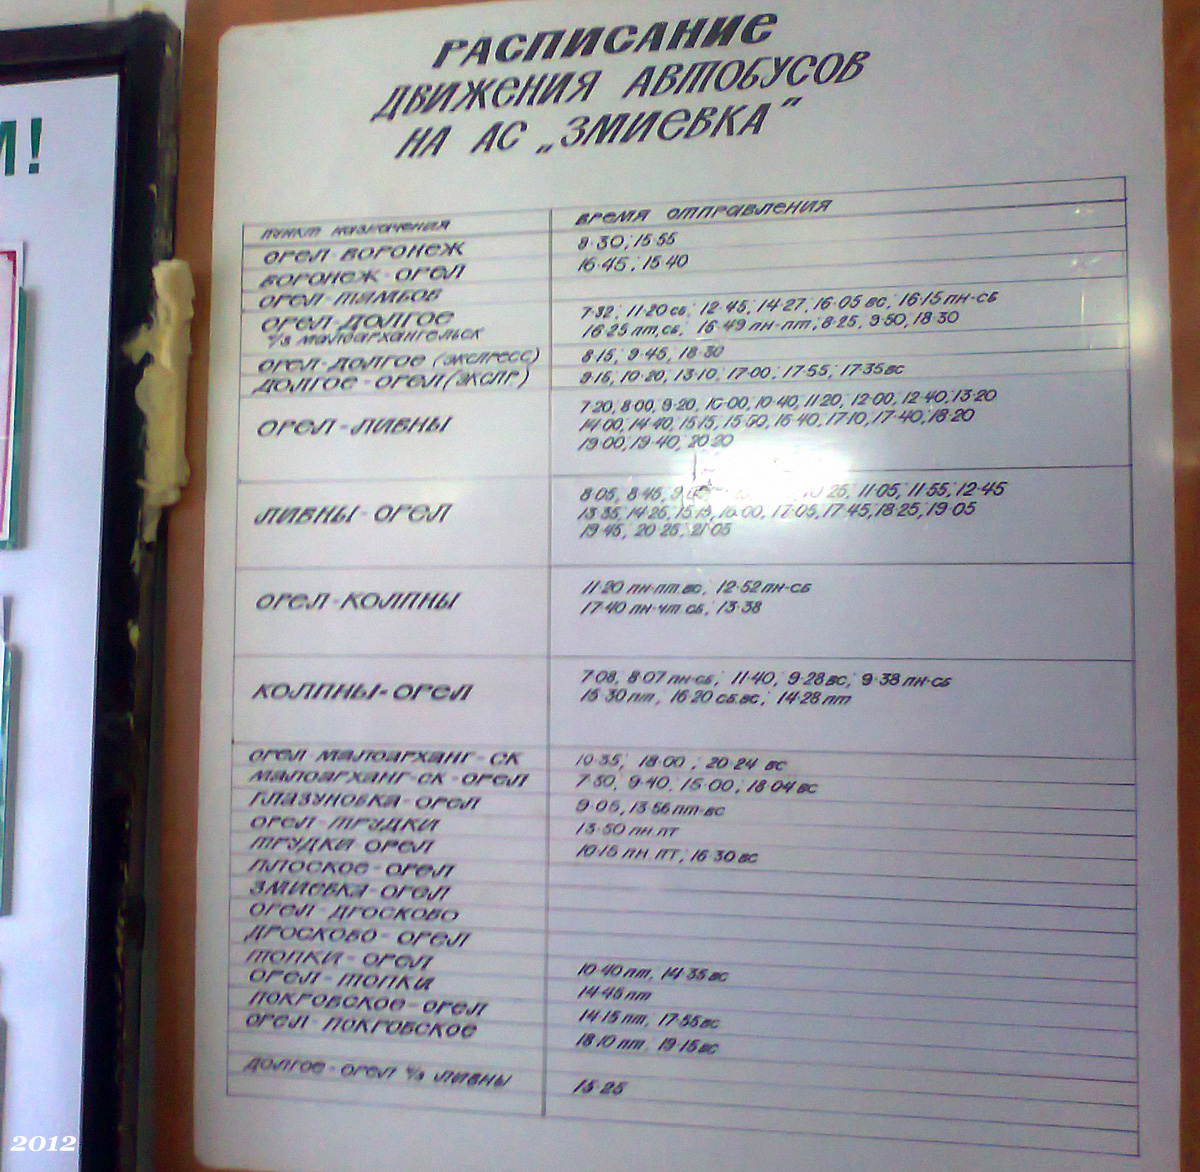 М!
РАСПИСАНИЕ
ДВИЖЕНИЯ АВТОБУСОВ
НА АС „ЗМИЕВКА"
ПУНКТ НАЗНАЧЕНИЯ ВРЕМЯ ОТПРАВЛЕНИЯ
ОРЕЛ-ВОРОНЕЖ 9·30; 15·55
ВОРОНЕЖ-ОРЕЛ 16·45; 15·40
ОРЕЛ-ТАМБОВ
ОРЕЛ-ДОЛГОЕ 7·32; 11·20 сб; 12·45; 14·27, 16·05 вс; 16·15 пн-сб
ч/з Малоархангельск 16·25 пт,сб; 16·49 пн-пт; 8·25, 9·50, 18·30
ОРЕЛ-ДОЛГОЕ (ЭКСПРЕСС) 8·15, 9·45, 18·30
ДОЛГОЕ-ОРЕЛ (ЭКСПР) 9·15, 10·20, 13·10; 17·00; 17·55; 17·35 вс
7·20, 8·00, 9·20, 10·00, 10·40, 11·20, 12·00, 12·40, 13·20
ОРЕЛ-ЛИВНЫ 14·00, 14·40, 15·15, 15·50, 16·40, 17·10, 17·40, 18·20
19·00, 19·40, 20·20
8·05, 8·45, 10·25, 11·05, 11·55, 12·45
ЛИВНЫ-ОРЕЛ 13·35, 14·25, 15·15, 16·00, 17·05, 17·45, 18·25, 19·05
19·45, 20·25, 21·05
11·20 пн-пт.вс; 12·52 пн-сб
ОРЕЛ-КОЛПНЫ 17·40 пн-чт.сб; 13·38
7·08, 8·07 пн-сб; 11·40; 9·28 вс; 9·38 пн-сб
КОЛПНЫ-ОРЕЛ 15·30 пт, 16·20 сб.вс; 14·28 пт
ОРЕЛ МАЛОАРХАНГ-СК 10·35; 18·00; 20·24 вс
МАЛОАРХАНГ-СК-ОРЕЛ 7·30, 9·40, 15·00, 18·04 вс
ГЛАЗУНОВКА-ОРЕЛ 9·05, 13·56 пт-вс
ОРЕЛ-ТРУДКИ 13·50 пн.пт
ТРУДКИ-ОРЕЛ 10·15 пн.пт, 16·30 вс
ПЛОСКОЕ-ОРЕЛ
ЗМИЕВКА-ОРЕЛ
ОРЕЛ-ДРОСКОВО
ДРОСКОВО-ОРЕЛ
ТОПКИ-ОРЕЛ 10·40 пт, 14·35 вс
ОРЕЛ-ТОПКИ 14·45 пт
ПОКРОВСКОЕ-ОРЕЛ 14·15 пт, 17·55 вс
ОРЕЛ-ПОКРОВСКОЕ 18·10 пт, 19·15 вс
ДОЛГОЕ-ОРЕЛ ч/з ЛИВНЫ 15·25
2012